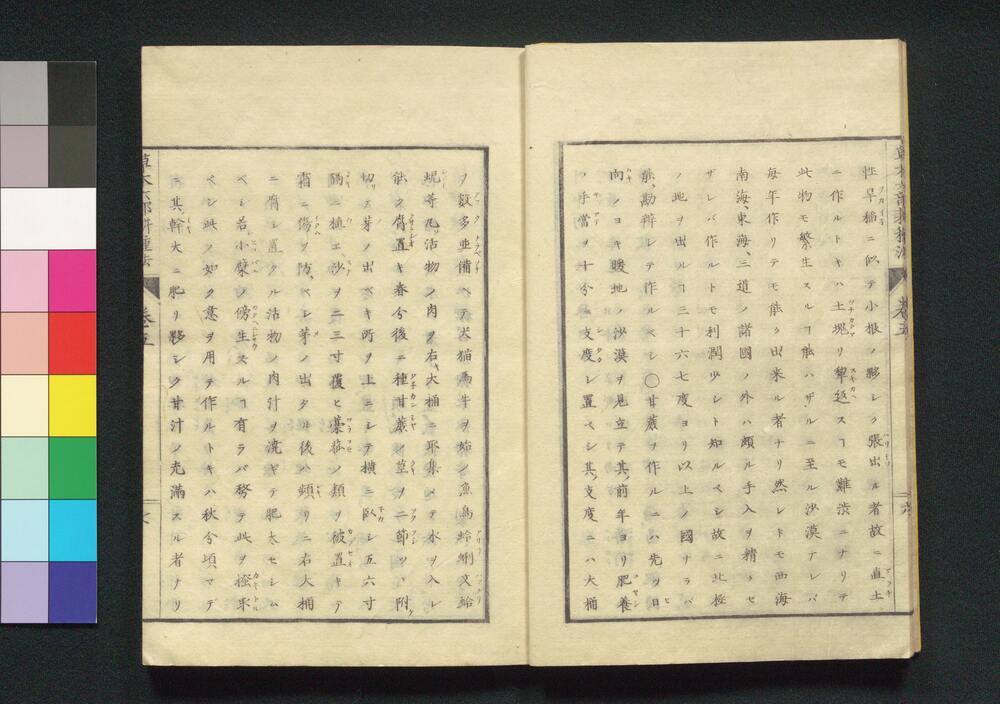 性旱稲ニ似テ小根ノ夥シク張出ル者故ニ直土
ニ作ルトキハ土塊リ犂返スヿモ難渋ニナリテ
此物モ繁生スルヿ能ハザルニ至ル沙漠アレバ
毎年作リテモ能ク出来ル者ナリ然レトモ西海
南海、東海、三道ノ諸國ノ外ハ頗ル手入ヲ精クセ
ザレバ作ルトモ利潤少シト知ルベシ故ニ北極
ノ地ヲ出ルヿ三十六七度ヨリ以上ノ國ナラバ
能、勘辨シテ作ルベシ〇甘蔗ヲ作ルニハ先ツ日
向ノヨキ暖地ノ沙漠ヲ見立テ其、前年ヨリ肥養
ノ手當ヲ十分ニ支度シ置ベシ其、支度ニハ大桶
ヲ數多並備ベテ犬猫馬牛ヲ始メ魚鳥蛤蜊文蛤
蜆等凡活物ノ肉ヲ右大桶ニ取集メテ水ヲ入レ
能ク腐置キ春分後ニ種甘蔗ノ莖ヲ二節ツヽ附
切テ芽ノ出ベキ所ヲ上ニシテ横ニ臥シ五六寸
隔ニ植ヱ沙ヲ二三寸覆ヒ藁菰ノ類ヲ被置キテ
霜ニ傷ヲ防、ベシ芽ノ出タル後ハ頻リニ右大桶
ニ腐シ置クル活物ノ肉汁ヲ澆ギテ肥太セシム
ベシ若、小櫱ノ傍生スルヿ有ラバ務テ此ヲ搔釆
ベシ此ノ如ク意ヲ用テ作ルトキハ秋分頃マデ
ニ其、幹大ニ肥リ夥シク甘汁ノ充滿スル者ナリ
草木六部耕種法
巻五